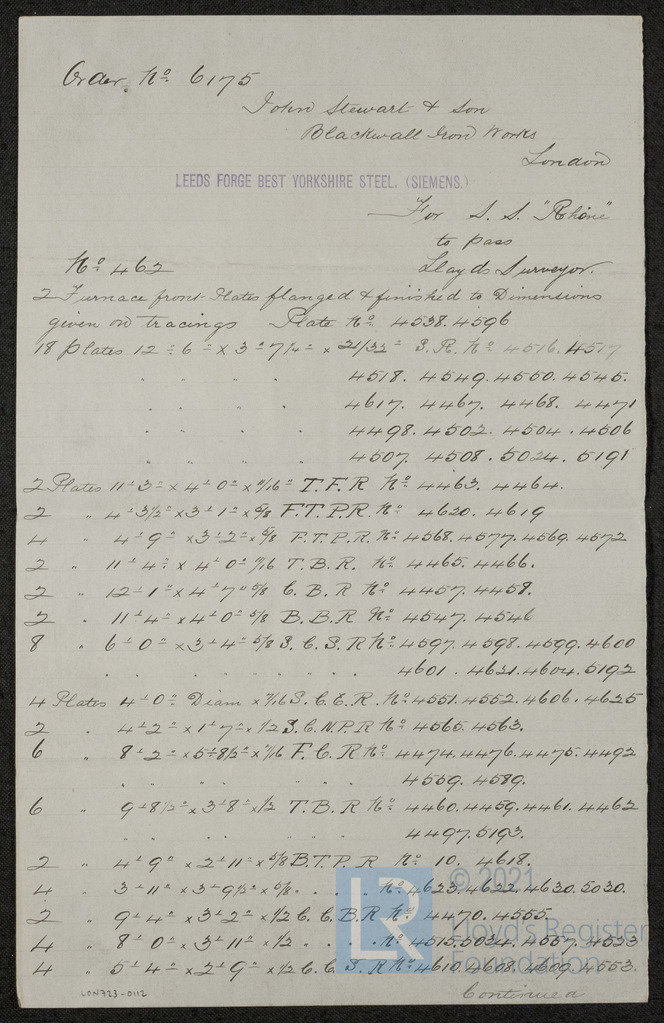 Order. No 6175
John Stewart & Son
Blackwall Iron Works
London
LEEDS FORGE BEST YORKSHIRE STEEL. (SIEMENS.)
For S. S. "Rhone"
to pass
No 462 Lloyds Surveyor.
2 Furnace front Plates flanged & finished to Dimensions
given on tracings Plate No 4538. 4596
18 Plates 12'-6" x 3'-7¼" x 21/32" S. R. No 4516. 4517
" " " " 4518. 4549. 4550. 4545.
" " " " 4617. 4467. 4468. 4471
" " " " 4498. 4502. 4504. 4506
" " " " 4507. 4508. 5024. 5191
2 Plates 11'-3" x 4'-0" x 11/16" T. F. R No 4463. 4464.
2 " 4'-3½" x 3'-1" x 5/8 F. T. P. R. No 4620. 4619
4 " 4'-9" x 3'-2" x 5/8 F. T. P. R. No 4568. 4577. 4569. 4572
2 " 11'-4" x 4'-0" 11/16 T. B. R. No 4465. 4466.
2 " 12'-1" x 4'-7" 5/8 C. B. R No 4457. 4458.
2 " 11'-4" x 4'-0" 5/8 B. B. R No 4547. 4546
8 " 6'-0" x 3'-4" 5/8 S. C. S. R No 4597. 4598. 4599. 4600
" " " " 4601. 4621. 4604. 5192
4 Plates 4'-0" Diam x 7/16 S. C. E. R. No 4551. 4552. 4606. 4625
2 " 4'-2" x 1'-7" x ½ S. C. N. P. R No 4565. 4563.
6 " 8'-2" x 5'-8½" x 11/16 F. C. R No 4474. 4476. 4475. 4492
" " " " 4559. 4589.
6 " 9'-8½" x 3'-8" x ½ T. B. R No 4460. 4459. 4461. 4462
" " " " 4497. 5193.
2 " 4'-9" x 2'-11" x 5/8 B. T. P. R No 10. 4618.
4 " 3'-11" x 3'-9½" x 5/8 " " " No 4623. 4622. 4630. 5030.
2 " 9'-4" x 3'-2" x ½ C. C. B. R No 4470. 4555.
4 " 8'-0" x 3'-11" x ½ " " " No 4515. 5034. 4557. 4533
4 " 5'-4" x 2'-9" x ½ C. C. S. R No 4610. 4608. 4609. 4553.
Continued
LON723-0112
LR
© 2021
Lloyd's Register
Foundation